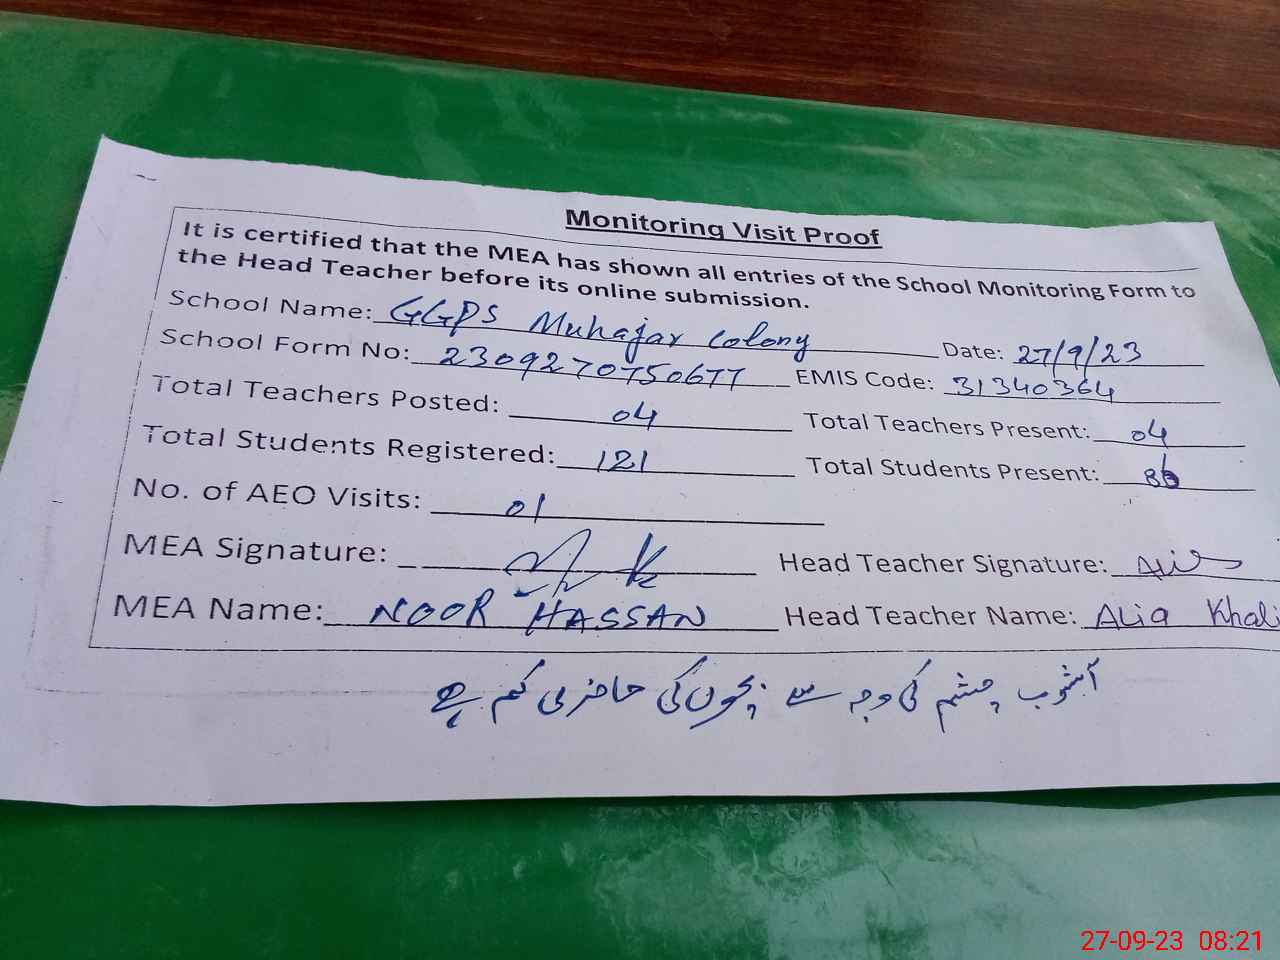 Monitoring Visit Proof
It is certified that the MEA has shown all entries of the School Monitoring Form to
the Head Teacher before its online submission.
School Name: GGPS Muhajar Colony Date: 27/9/23
School Form No: 230927075067 EMIS Code: 31340364
Total Teachers Posted: 04 Total Teachers Present: 04
Total Students Registered: 121 Total Students Present: 86
No. of AEO Visits: 01
MEA Signature: Head Teacher Signature:
MEA Name: NOOR HASSAN Head Teacher Name: Alia Khali
آشوب چشم کی وجہ سے بچوں کی حاضری کم ہے
27-09-23 08:21